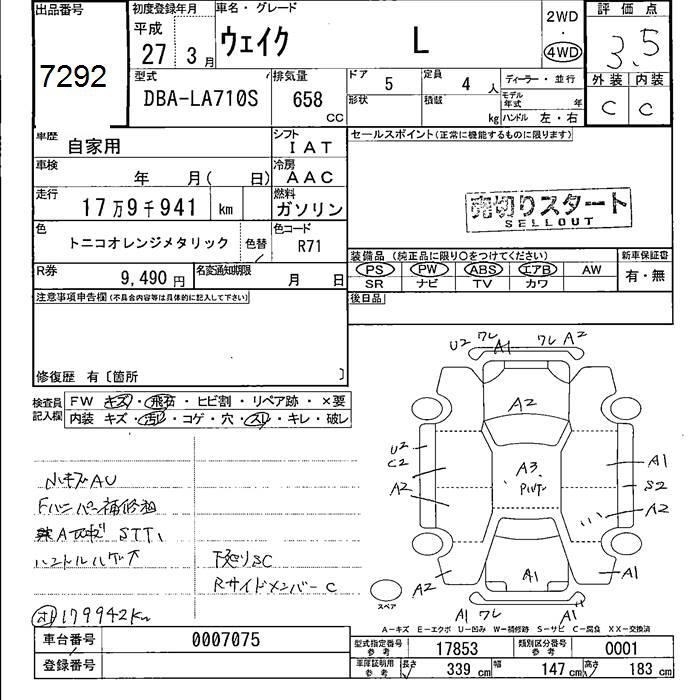 出品番号
7292
初度登録年月
平成
27 3月
車名・グレード
ウェイク L
2WD
・
4WD
評価点
3.5
外装 内装
C C
型式
DBA-LA710S
排気量
658
CC
ドア
5
定員
4 人
形状
積載
kg
ディーラー・並行
モデル年式 年
ハンドル 左・右
車歴
自家用
シフト
IAT
車検
年 月( 日)
冷房
AAC
走行
17万9千941 km
燃料
ガソリン
色
トニコオレンジメタリック
色替
色コード
R71
R券
9,490円
名変通知期限
月 日
セールスポイント(正常に機能するものに限ります)
売切りスタート
SELLOUT
装備品(純正品に限り○をつけてください)
PS PW ABS エアB AW
SR ナビ TV カワ
新車保証書
有・無
注意事項申告欄(不具合内容等は具体的に記入して下さい)
後日品
修復歴 有〔箇所 〕
検査員記入欄
FW キズ・飛石・ヒビ割・リペア跡・×要
内装 キズ・汚れ・コゲ・穴・スレ・キレ・破し
小キズAU
Fバンパー補修粗
STT
下廻りSC
RサイドメンバーC
179942Km
U2 ワレ A1 ワレ A2
A2
U2
C2
A2
A3
A1
S2
A2
A2
A1
A1
スペア
A1 ワレ A1
A－キズ E－エクボ U－凹み W－補修跡 S－サビ C－腐食 XX－交換済
車台番号
0007075
登録番号
型式指定番号
参考
17853
類別区分番号
参考
0001
車庫証明用
参考
長さ
339 cm
幅
147 cm
高さ
183 cm